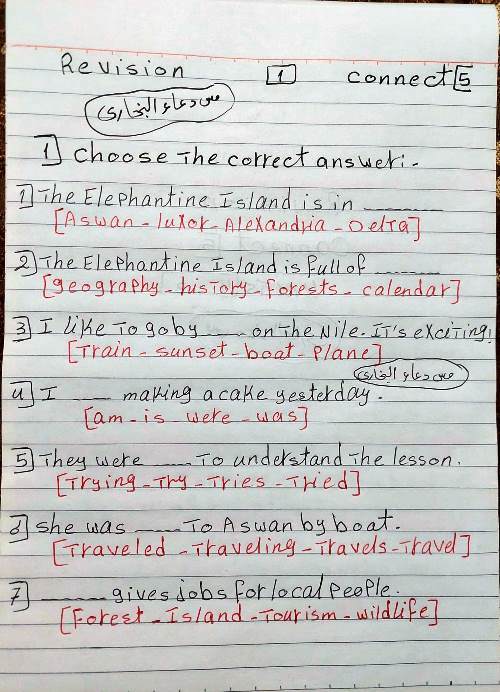 Revision 1 connect 5
مس دعاء البخارى
1 Choose The correct answer:-
1 The Elephantine Island is in ______
[Aswan - luxor - Alexandria - Delta]
2 The Elephantine Island is full of ______
[geography - history - forests - calendar]
3 I like To go by ____ on The Nile. IT's exciting!
[Train - sunset - boat - Plane]
مس دعاء البخارى
4 I ____ making a cake yesterday.
[am - is - were - was]
5 They were ____ To understand The lesson.
[Trying - Try - Tries - Tried]
6 she was ____ To Aswan by boat.
[Traveled - Traveling - Travels - Travel]
7 ______ gives jobs for local people.
[Forest - Island - Tourism - wildlife]